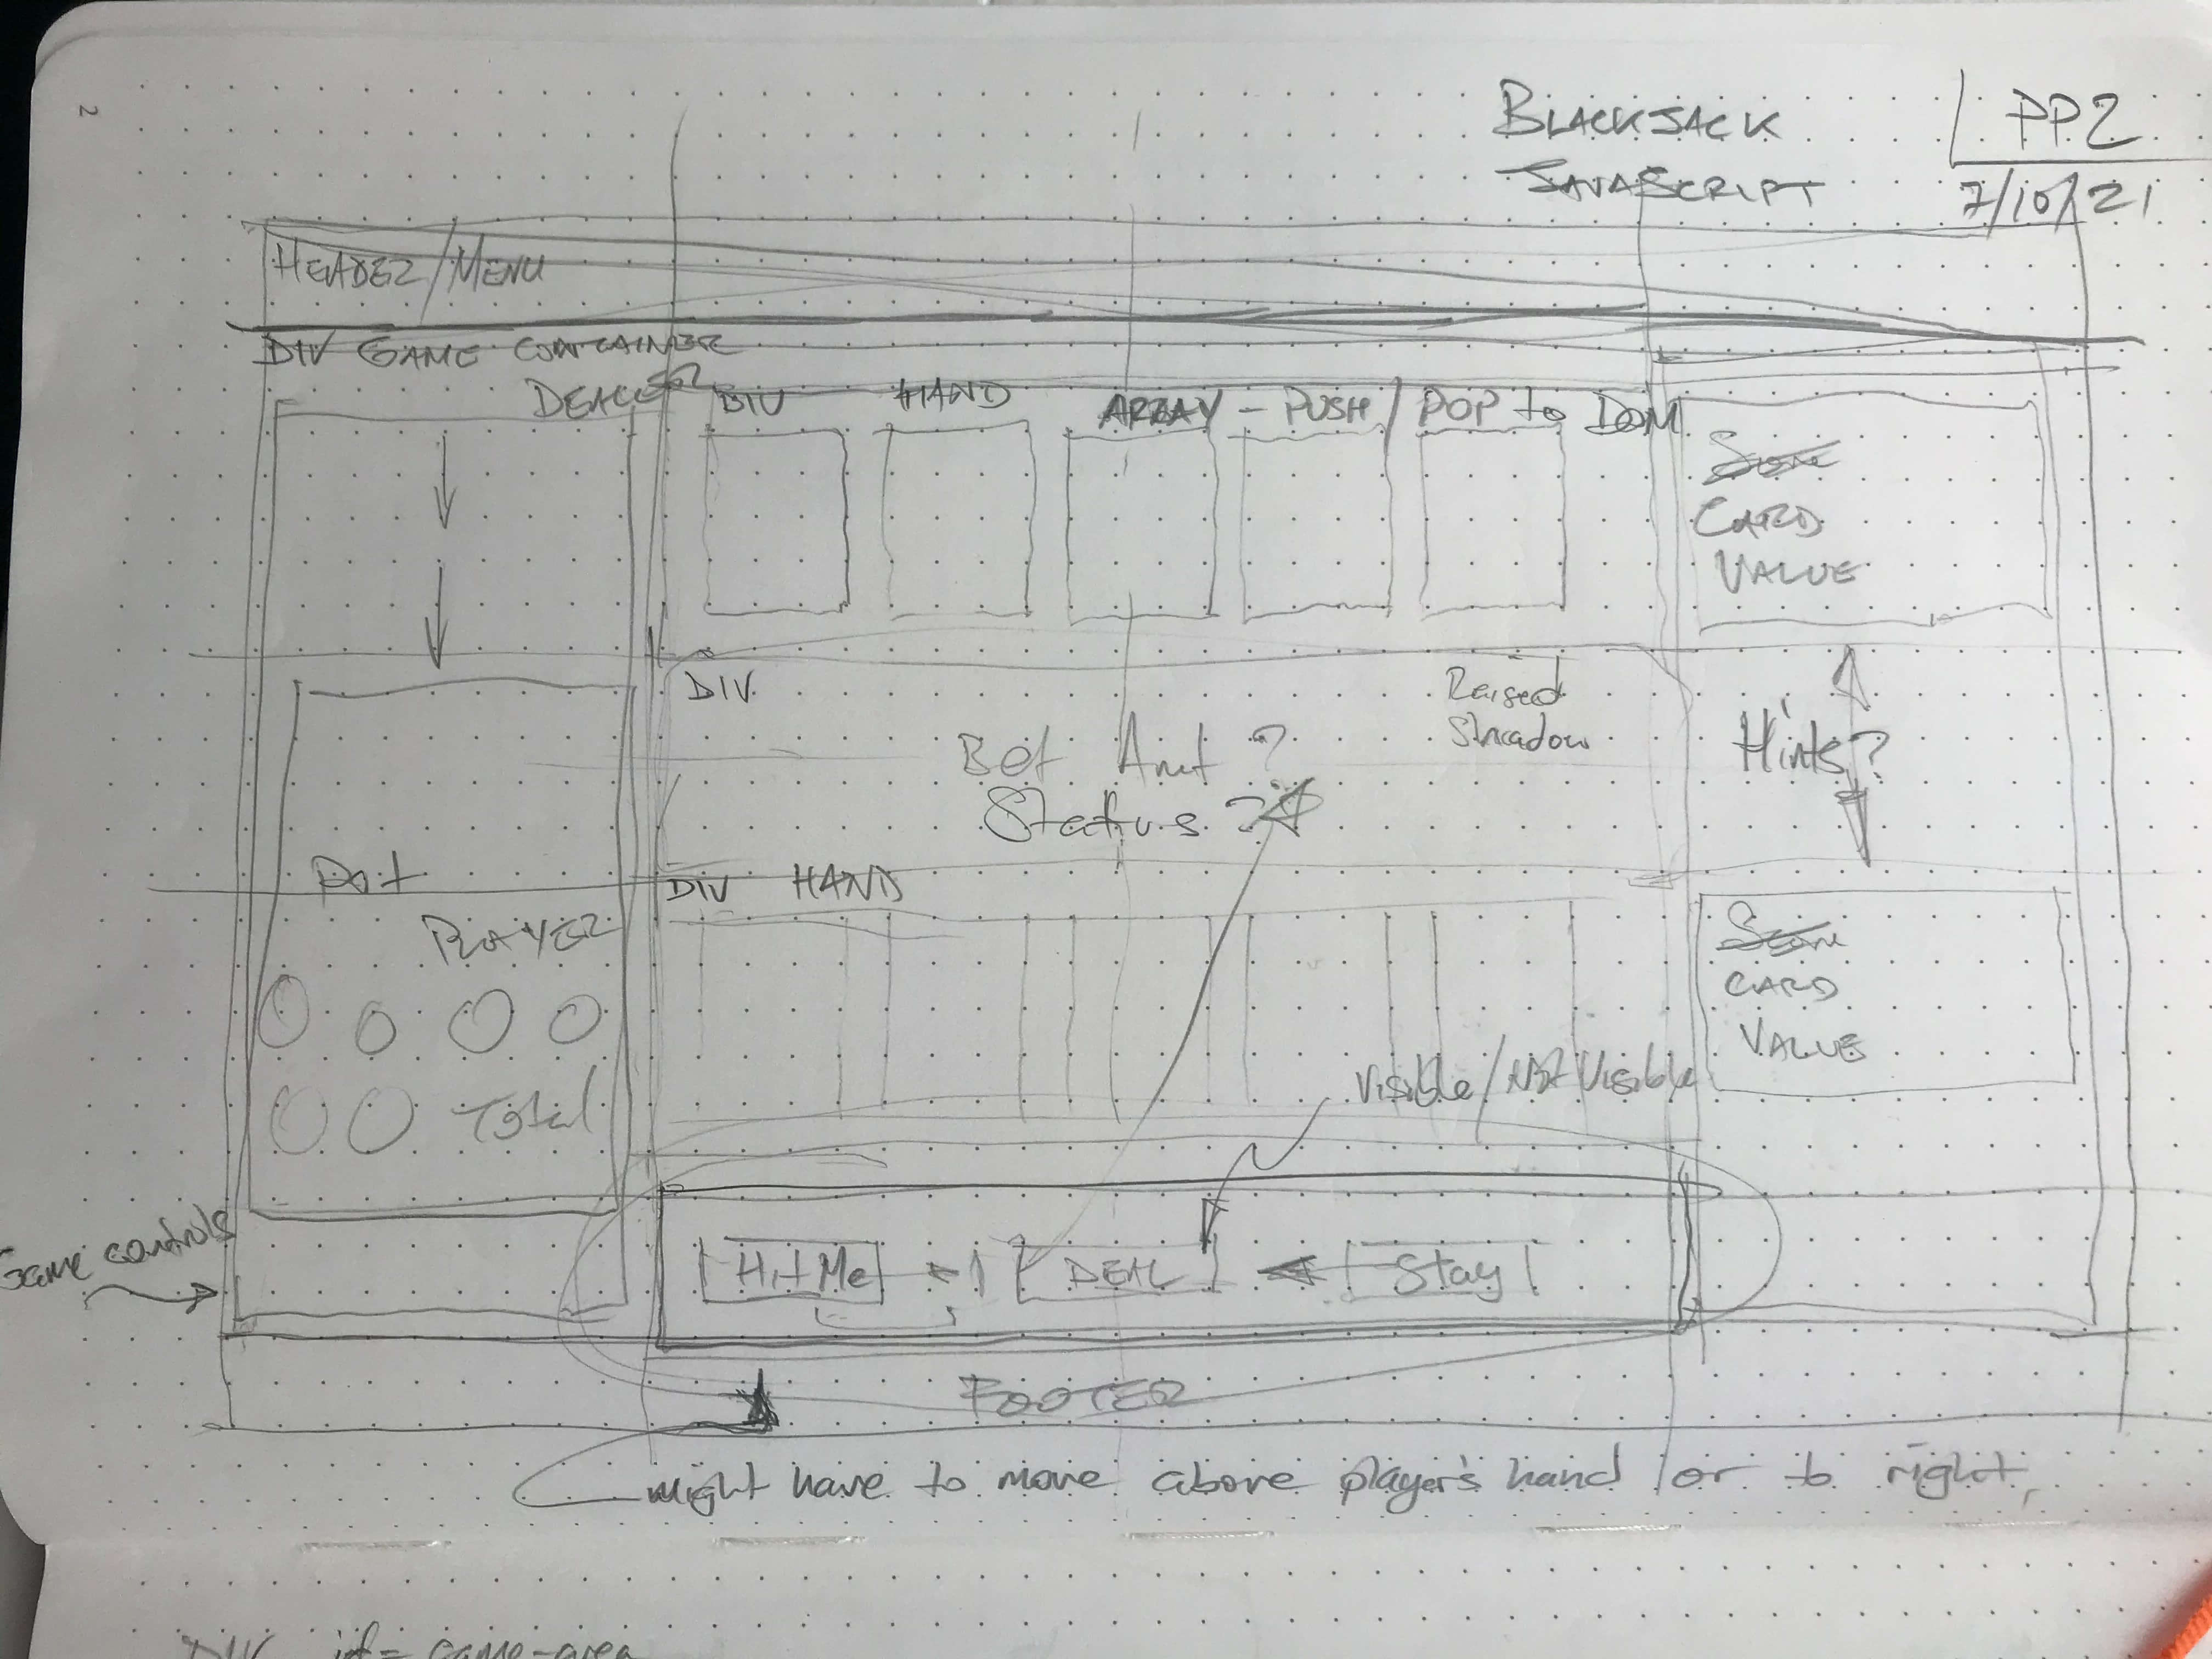 2
BLACKJACK
JAVASCRIPT
PP2
7/10/21
HEADER/MENU
DIV GAME CONTAINER
DEALER
DIV HAND ARRAY - PUSH/POP to DOM
Score
CARD
VALUE
DIV
Raised
Shadow
Bet Amt?
Status?
Hints?
Pot
DIV HAND
PLAYER
Score
CARD
VALUE
Total
Visible/Not Visible
Game controls
Hit Me
DEAL
Stay
FOOTER
might have to move above player's hand or to right,
DIV id= game-area